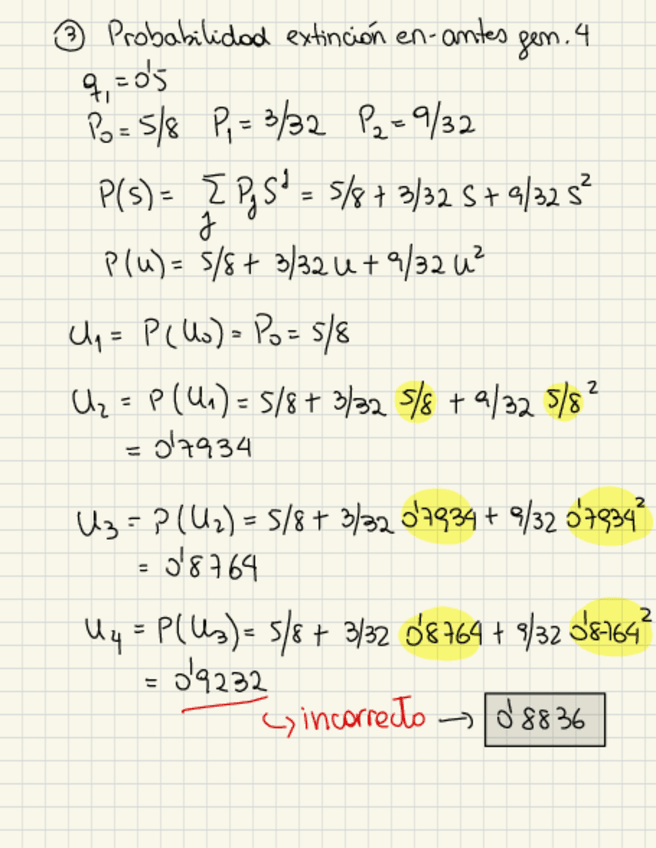 ③ Probabilidad extinción en-antes gen. 4
q₁ = 0'5
P₀ = 5/8 P₁ = 3/32 P₂ = 9/32
P(s) = ∑ⱼ Pⱼ Sʲ = 5/8 + 3/32 S + 9/32 S²
P(u) = 5/8 + 3/32 u + 9/32 u²
U₁ = P(U₀) = P₀ = 5/8
U₂ = P(U₁) = 5/8 + 3/32 5/8 + 9/32 5/8²
= 0'7934
U₃ = P(U₂) = 5/8 + 3/32 0'7934 + 9/32 0'7934²
= 0'8764
U₄ = P(U₃) = 5/8 + 3/32 0'8764 + 9/32 0'8764²
= 0'9232
↳ incorrecto → 0'8836